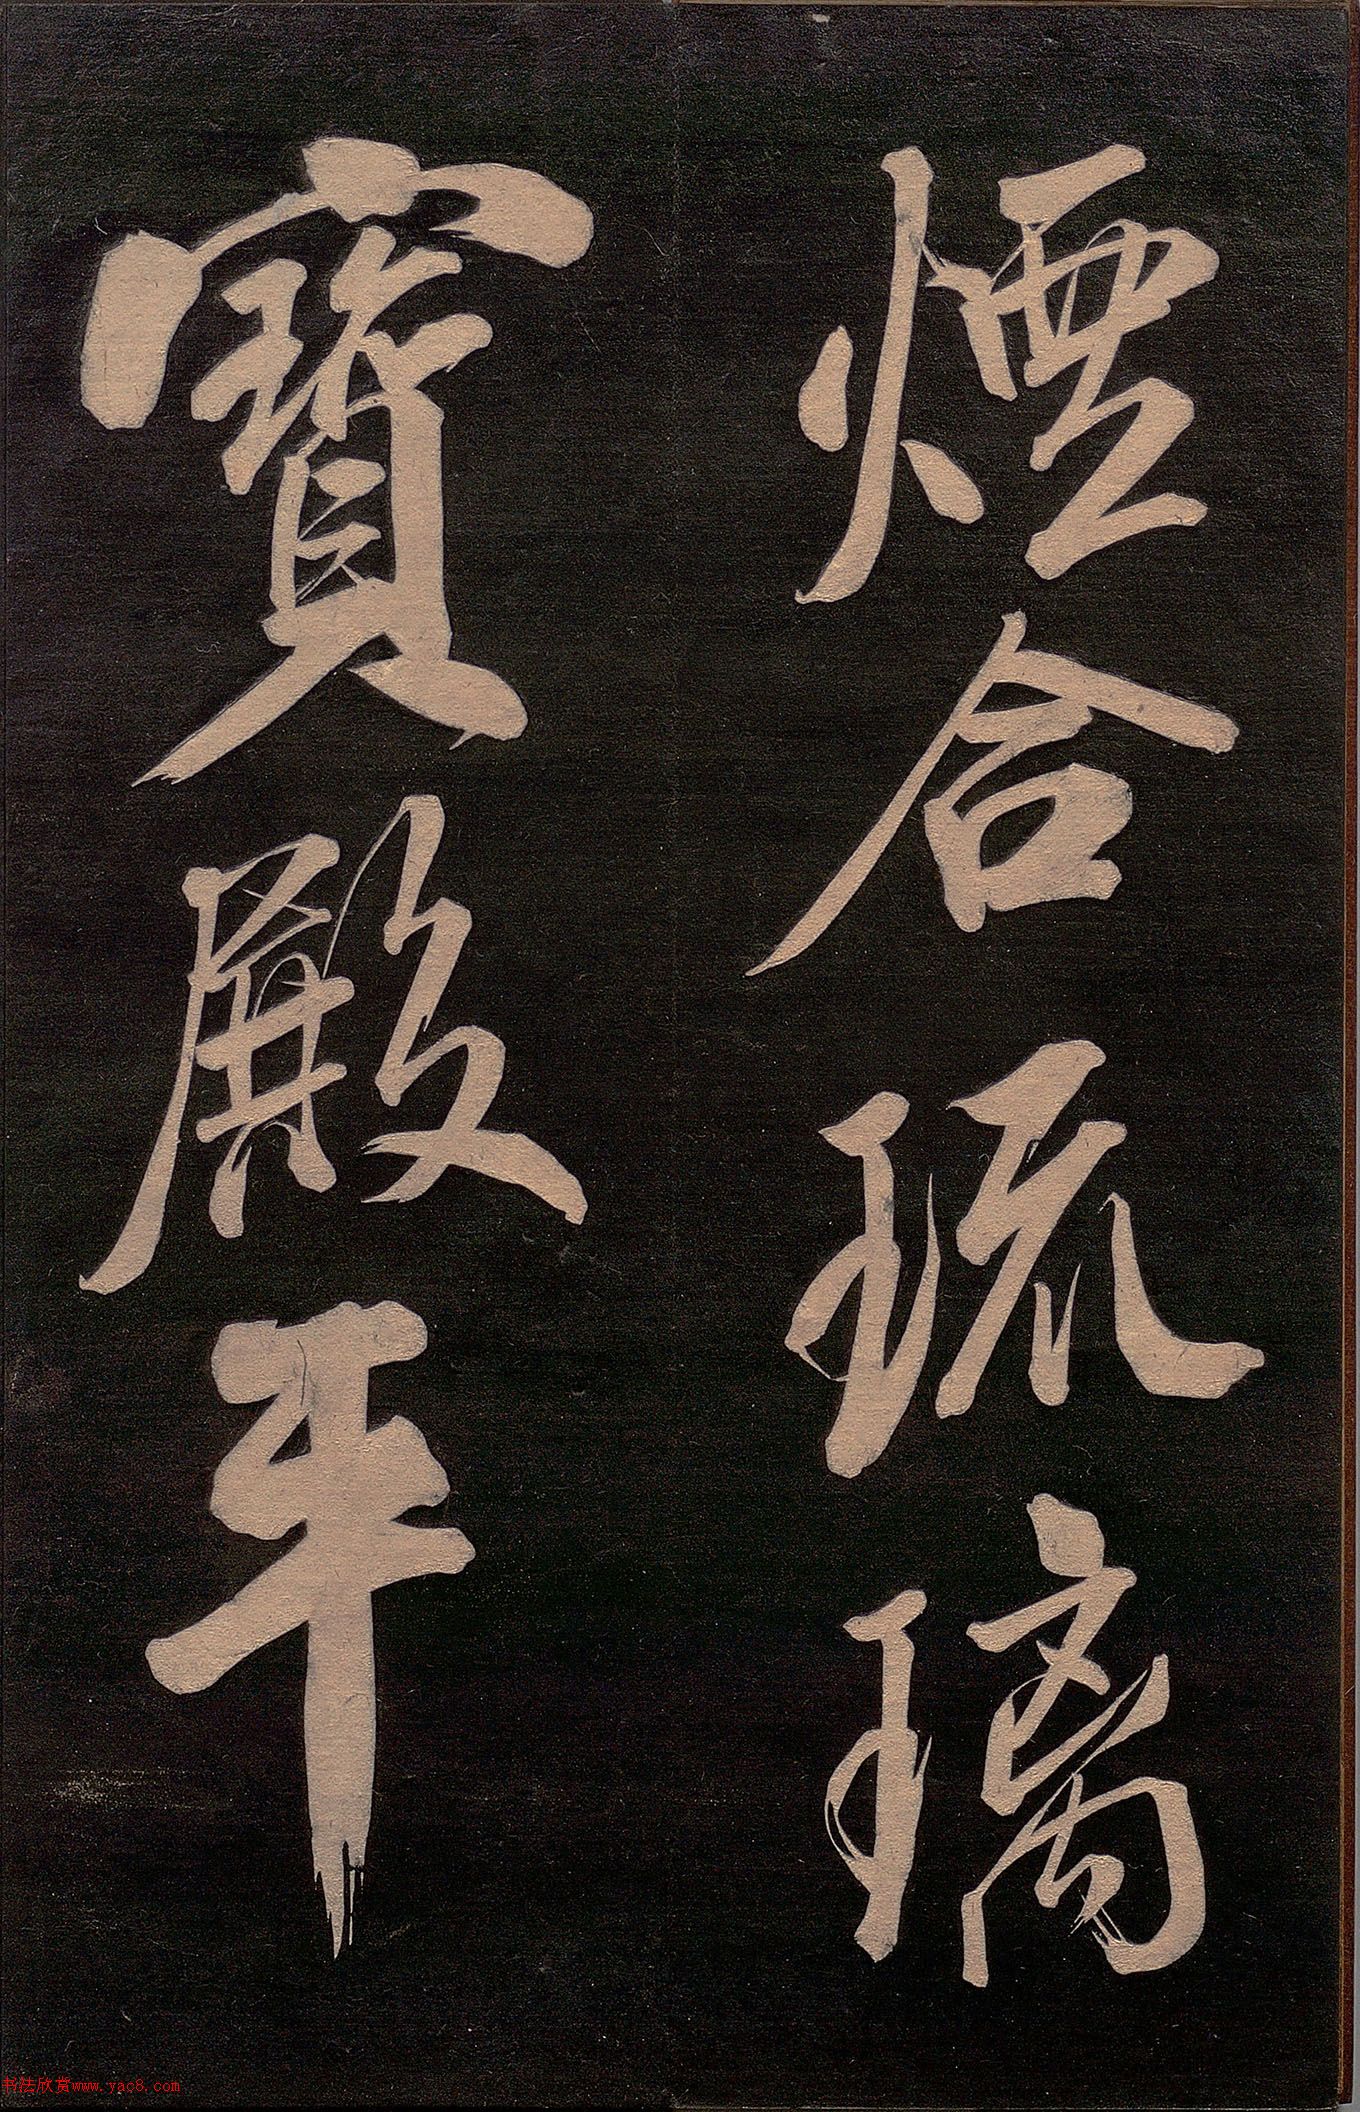 煙合琉璃
寶殿平
书法欣赏www.yac8.com